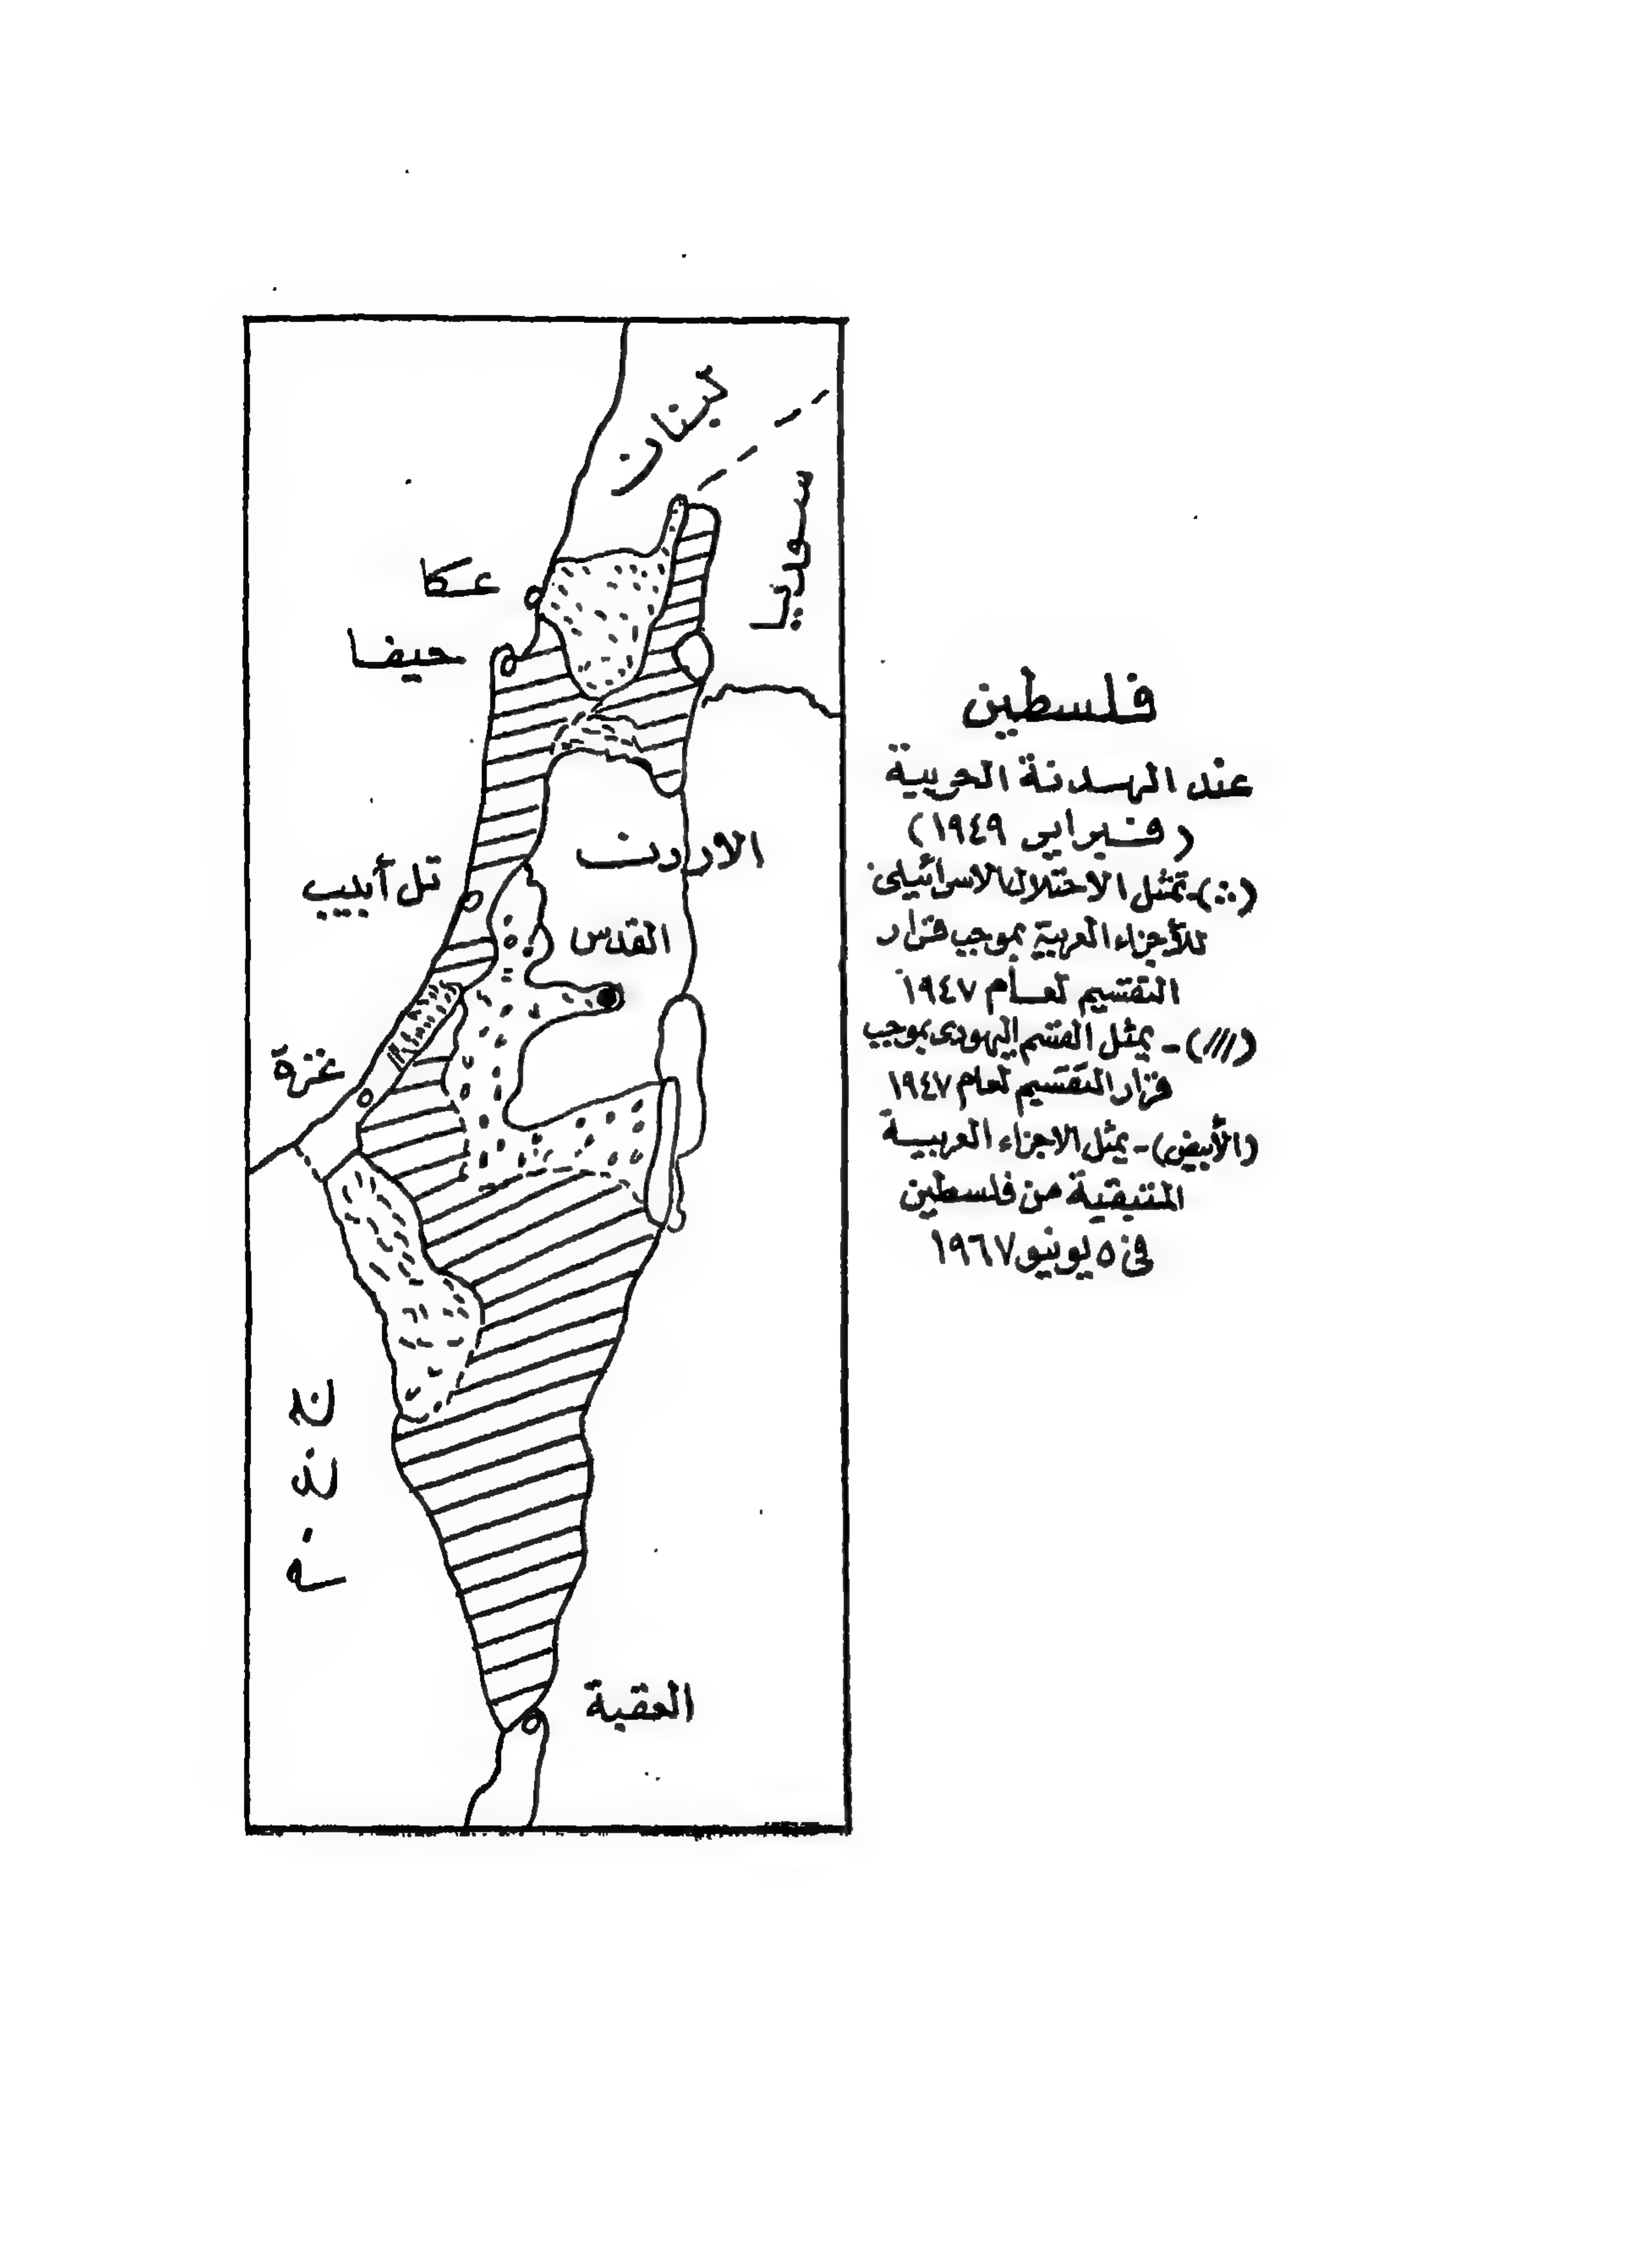 لبنان
سوريا
عكا
حيفا
الاردن
تل أبيب
القدس
غزة
ج . ع . م
العقبة
فلسطين
عند الهدنة الحربية
( فبراير ١٩٤٩ )
(∴)-تمثل الاحتلال الاسرائيلى
للأجزاء العربية بموجب قرار
التقسيم لعام ١٩٤٧
(///)- يمثل القسم اليهودى بموجب
قرار التقسيم لعام ١٩٤٧
(الأبيض)- يمثل الاجزاء العربية
المتبقية من فلسطين
فى ٥ يونيو ١٩٦٧